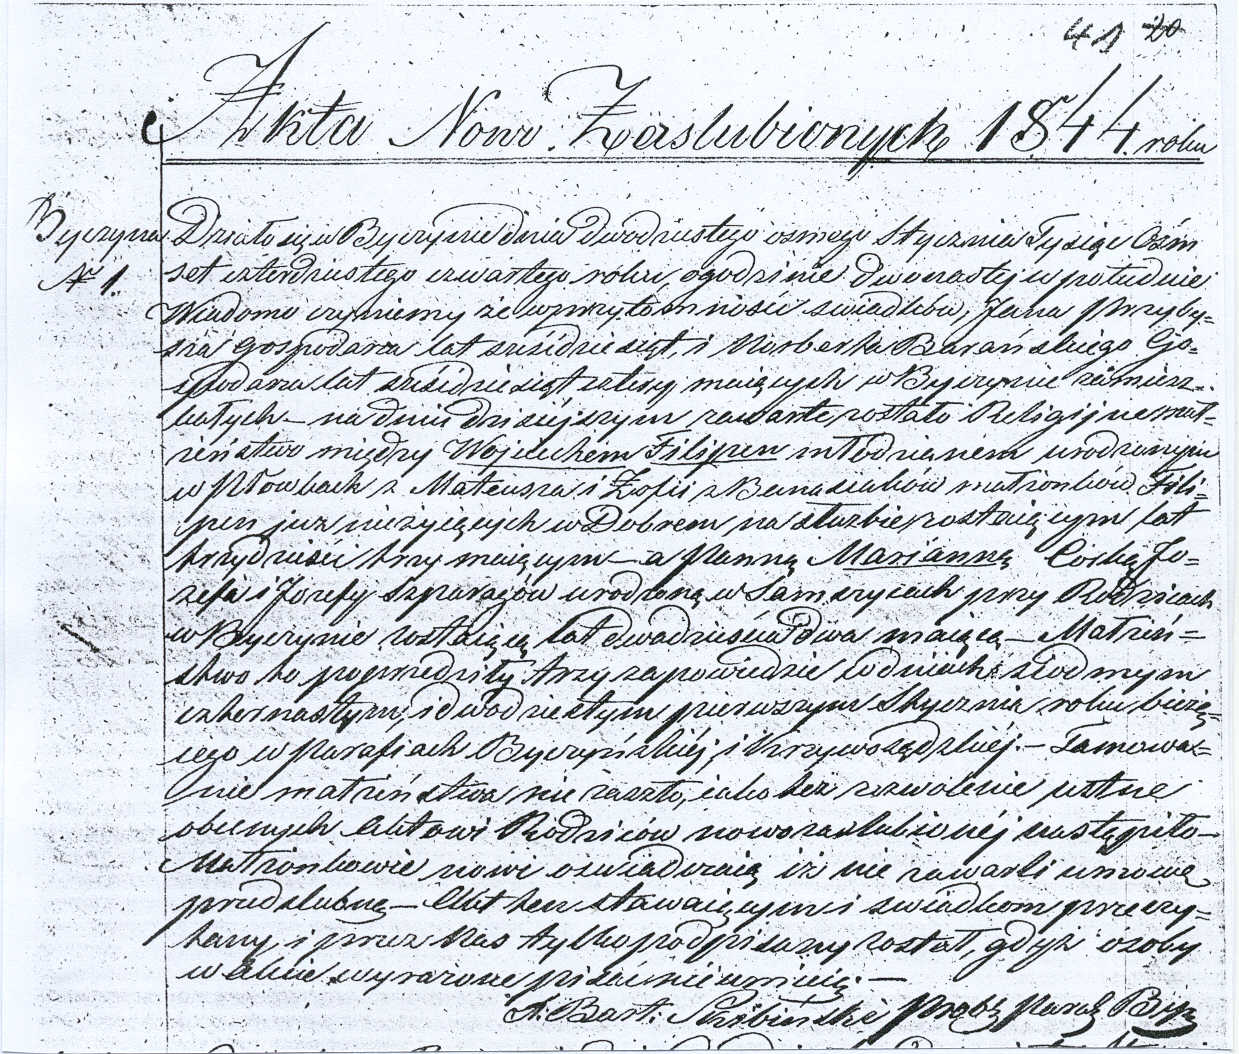 41 20
Akta Nowo Zaslubionych 1844 roku
Byczyna
N 1.
Działo się w Byczynie dnia dwudziestego osmego Stycznia Tysiąc Ośm
set czterdziestego czwartego roku, o godzinie dwunastej w południe
Wiadomo czyniemy że w przytomności swiadków, Jana Przyby-
sza Gospodarza lat szsśdziesiąt, i Norberta Barańskiego Go-
spodarza lat sześćdziesiąt cztery maiących w Byczynie zamiesz-
kałych – na dniu dzisiejszym zawarte zostało Religijne mał-
żeństwo między Wojciechem Filipem młodzianem urodzonym
w Płowkach z Mateusza i Zofii z Banasiaków małżonków Fili-
pen już nieżyiących w Dobrem, na służbie zostaiącym lat
trzydzieści trzy maiącym – a Panną Marianną Corką Jo-
zefa i Jozefy Szparagów urodzoną w Samszycach przy Rodzicach
w Byczynie zostaiącą lat dwadzieścia dwa maiącą – Małżeń-
stwo to poprzedziły trzy zapowiedzie w dniach: siodmym
czternastym, i dwudziestym pierwszym Stycznia roku bieżą-
cego w Parafiach Byczyńskiéj, i Krzywosądzkiéj. – Tamowa-
nie małżeństwa nie zaszło, iako też zezwolenie ustne
obecnych Aktowi Rodziców nowozaslubionéj nastąpiło –
Małżonkowie nowi oswiadczaią iż nie zawarli umowę
przedslubną – Akt ten stawaiącym i swiadkom przeczy-
tany, i przez Nas tylko podpisany został, gdyż osoby
w akcie wyrażone pisać nieumieią. –
X. Bart: Prob: Paraf: Bycz